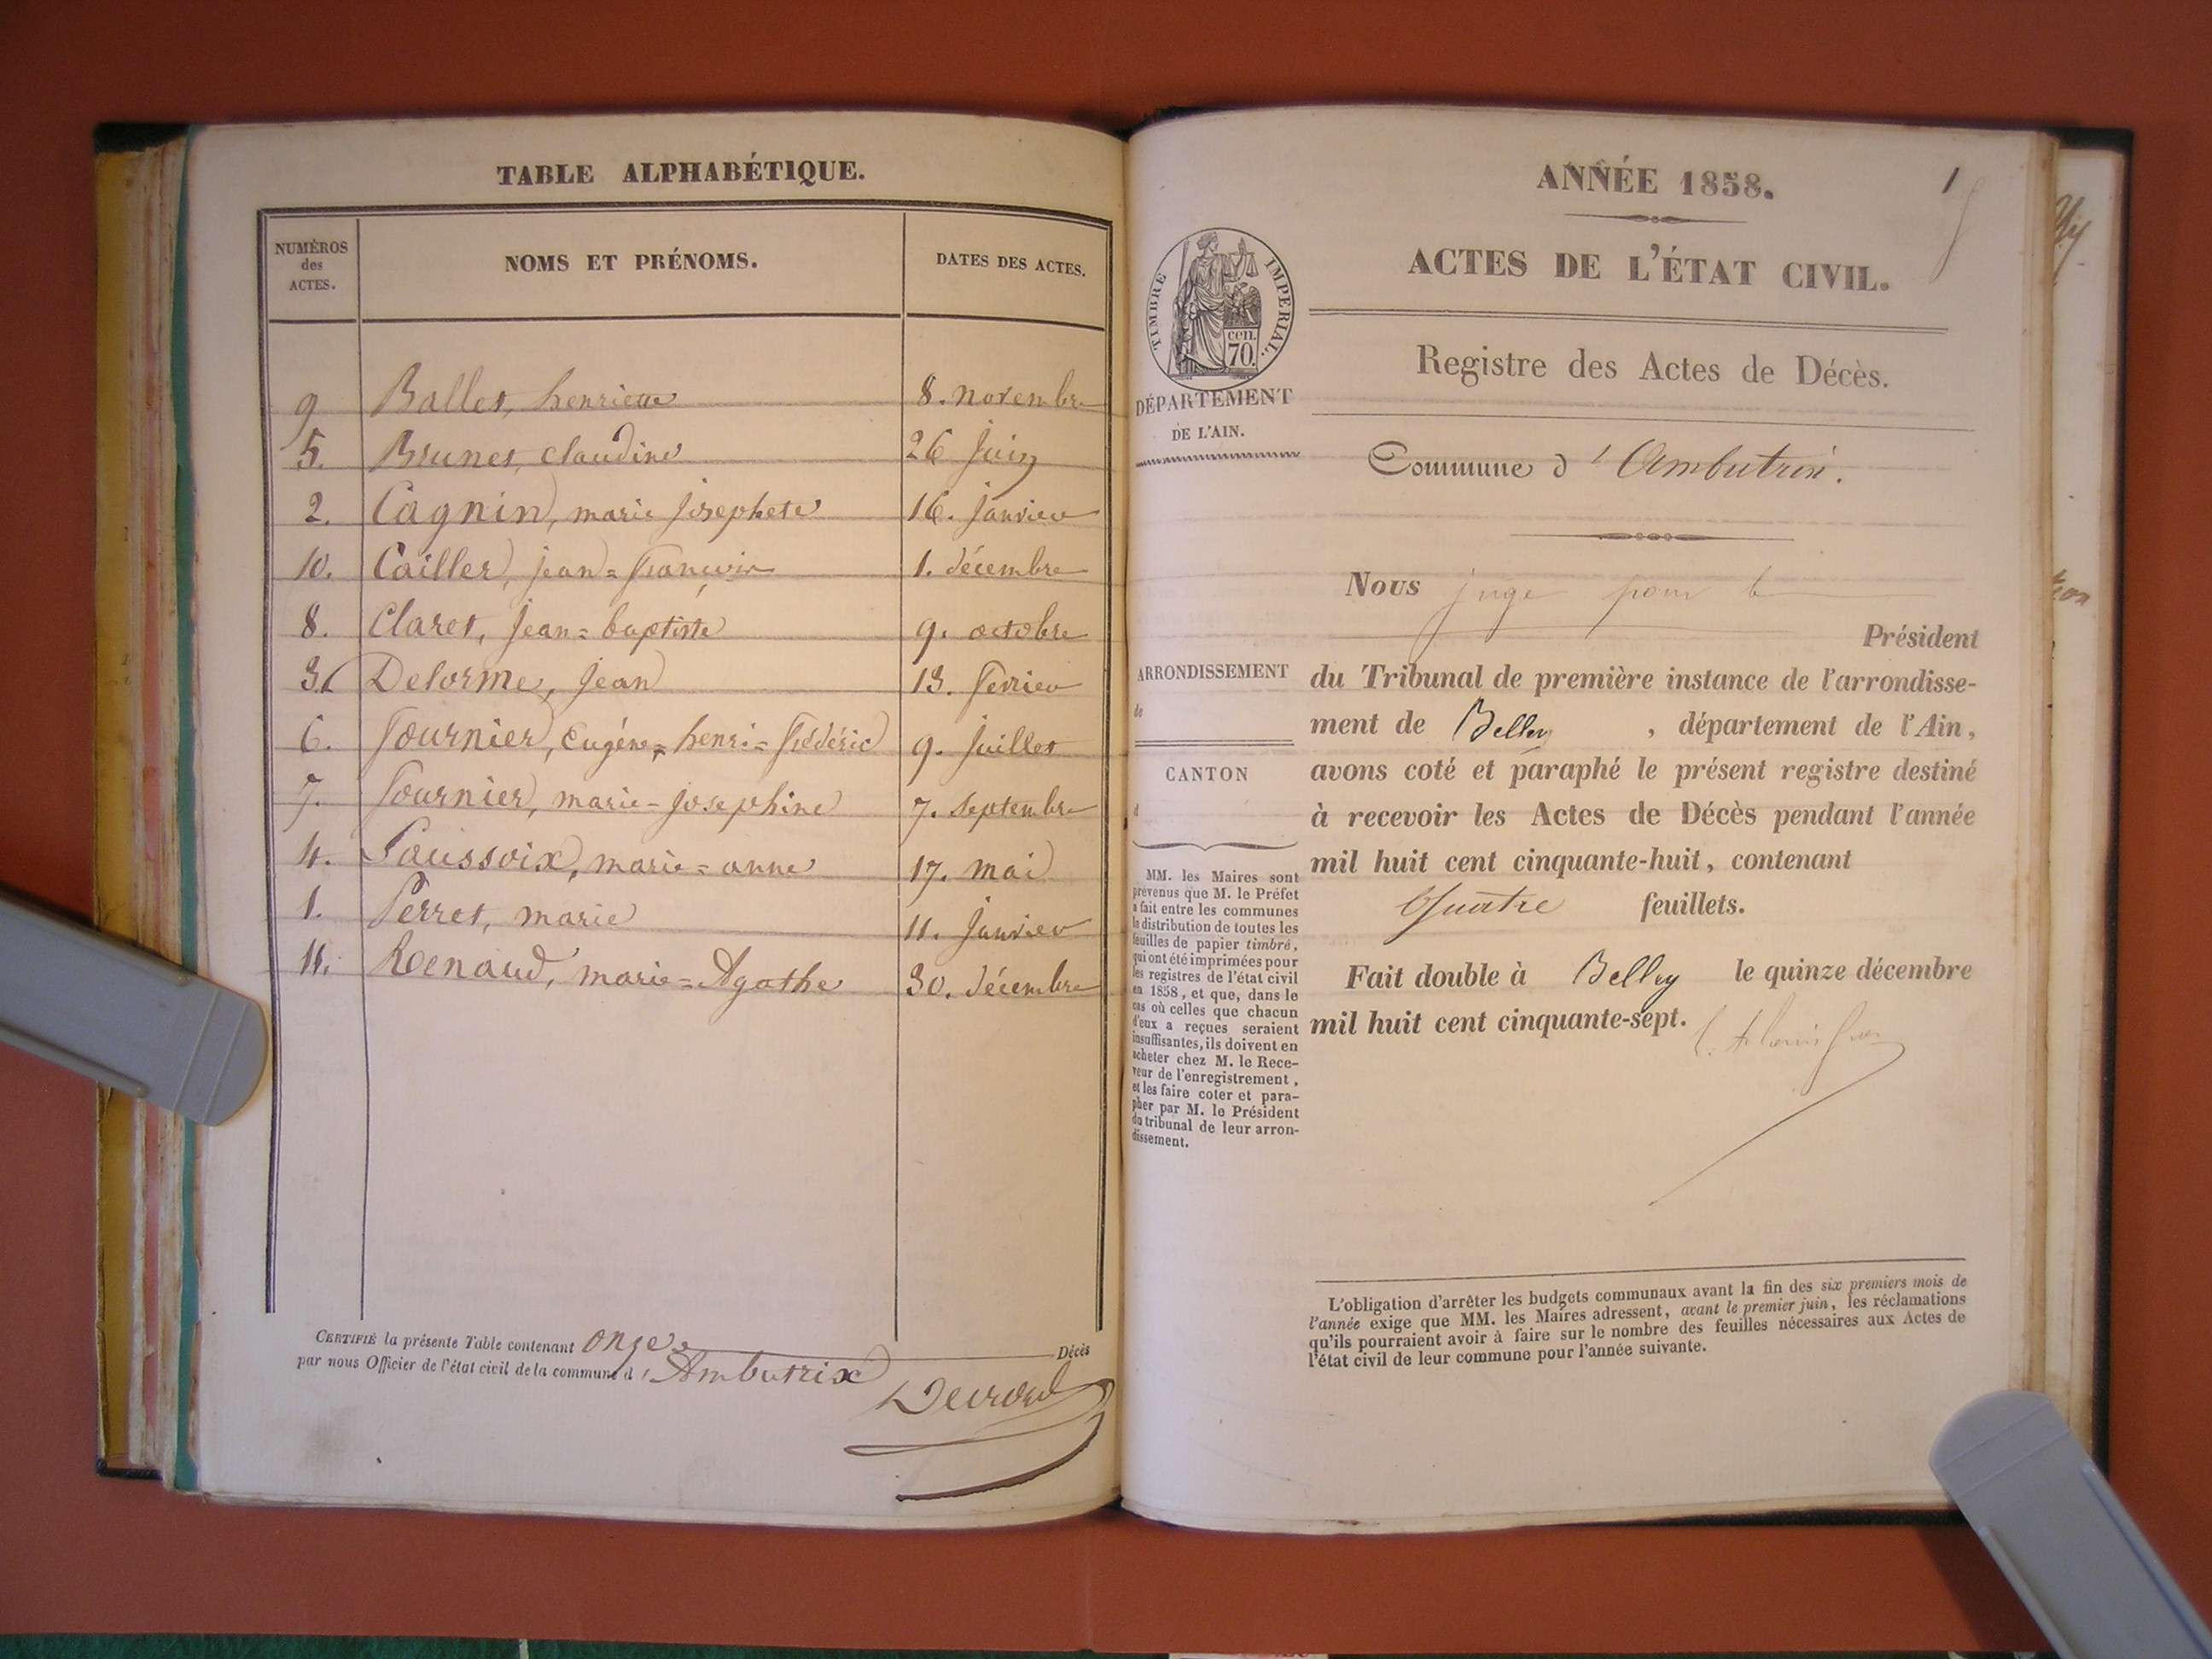 TABLE ALPHABÉTIQUE.
NUMÉROS des ACTES. NOMS ET PRÉNOMS. DATES DES ACTES.
9 Ballet, henriette 8. novembre
5. Brunet, claudine 26 juin
2. Cagnin, marie josephete 16. janvier
10. Caillet, jean=françois 1. décembre
8. Claret, jean=baptiste 9. octobre
3. Delorme, jean 13. février
6. fournier, Eugène=henri=frédéric 9. juillet
7. fournier, marie=josephine 7. septembre
4. marie=anne 17. mai
1. Perret, marie 11. janvier
11. Renaud, marie=Agathe 30. décembre
CERTIFIÉ la présente Table contenant onze Décès
par nous Officier de l'état civil de la commune d'Ambutrix
ANNÉE 1858.
1
ACTES DE L'ÉTAT CIVIL.
TIMBRE IMPERIAL.
cen.
70.
DÉPARTEMENT
DE L'AIN.
Registre des Actes de Décès.
Commune d'Ambutrix.
Nous juge pour le
Président
du Tribunal de première instance de l'arrondisse-
ment de Belley, département de l'Ain,
avons coté et paraphé le présent registre destiné
à recevoir les Actes de Décès pendant l'année
mil huit cent cinquante-huit, contenant
Quatre feuillets.
Fait double à Belley le quinze décembre
mil huit cent cinquante-sept.
ARRONDISSEMENT
de
CANTON
d
MM. les Maires sont
prévenus que M. le Préfet
a fait entre les communes
la distribution de toutes les
feuilles de papier timbré,
qui ont été imprimées pour
les registres de l'état civil
en 1858, et que, dans le
cas où celles que chacun
d'eux a reçues seraient
insuffisantes, ils doivent en
acheter chez M. le Rece-
veur de l'enregistrement,
et les faire coter et para-
pher par M. le Président
du tribunal de leur arron-
dissement.
L'obligation d'arrêter les budgets communaux avant la fin des six premiers mois de
l'année exige que MM. les Maires adressent, avant le premier juin, les réclamations
qu'ils pourraient avoir à faire sur le nombre des feuilles nécessaires aux Actes de
l'état civil de leur commune pour l'année suivante.